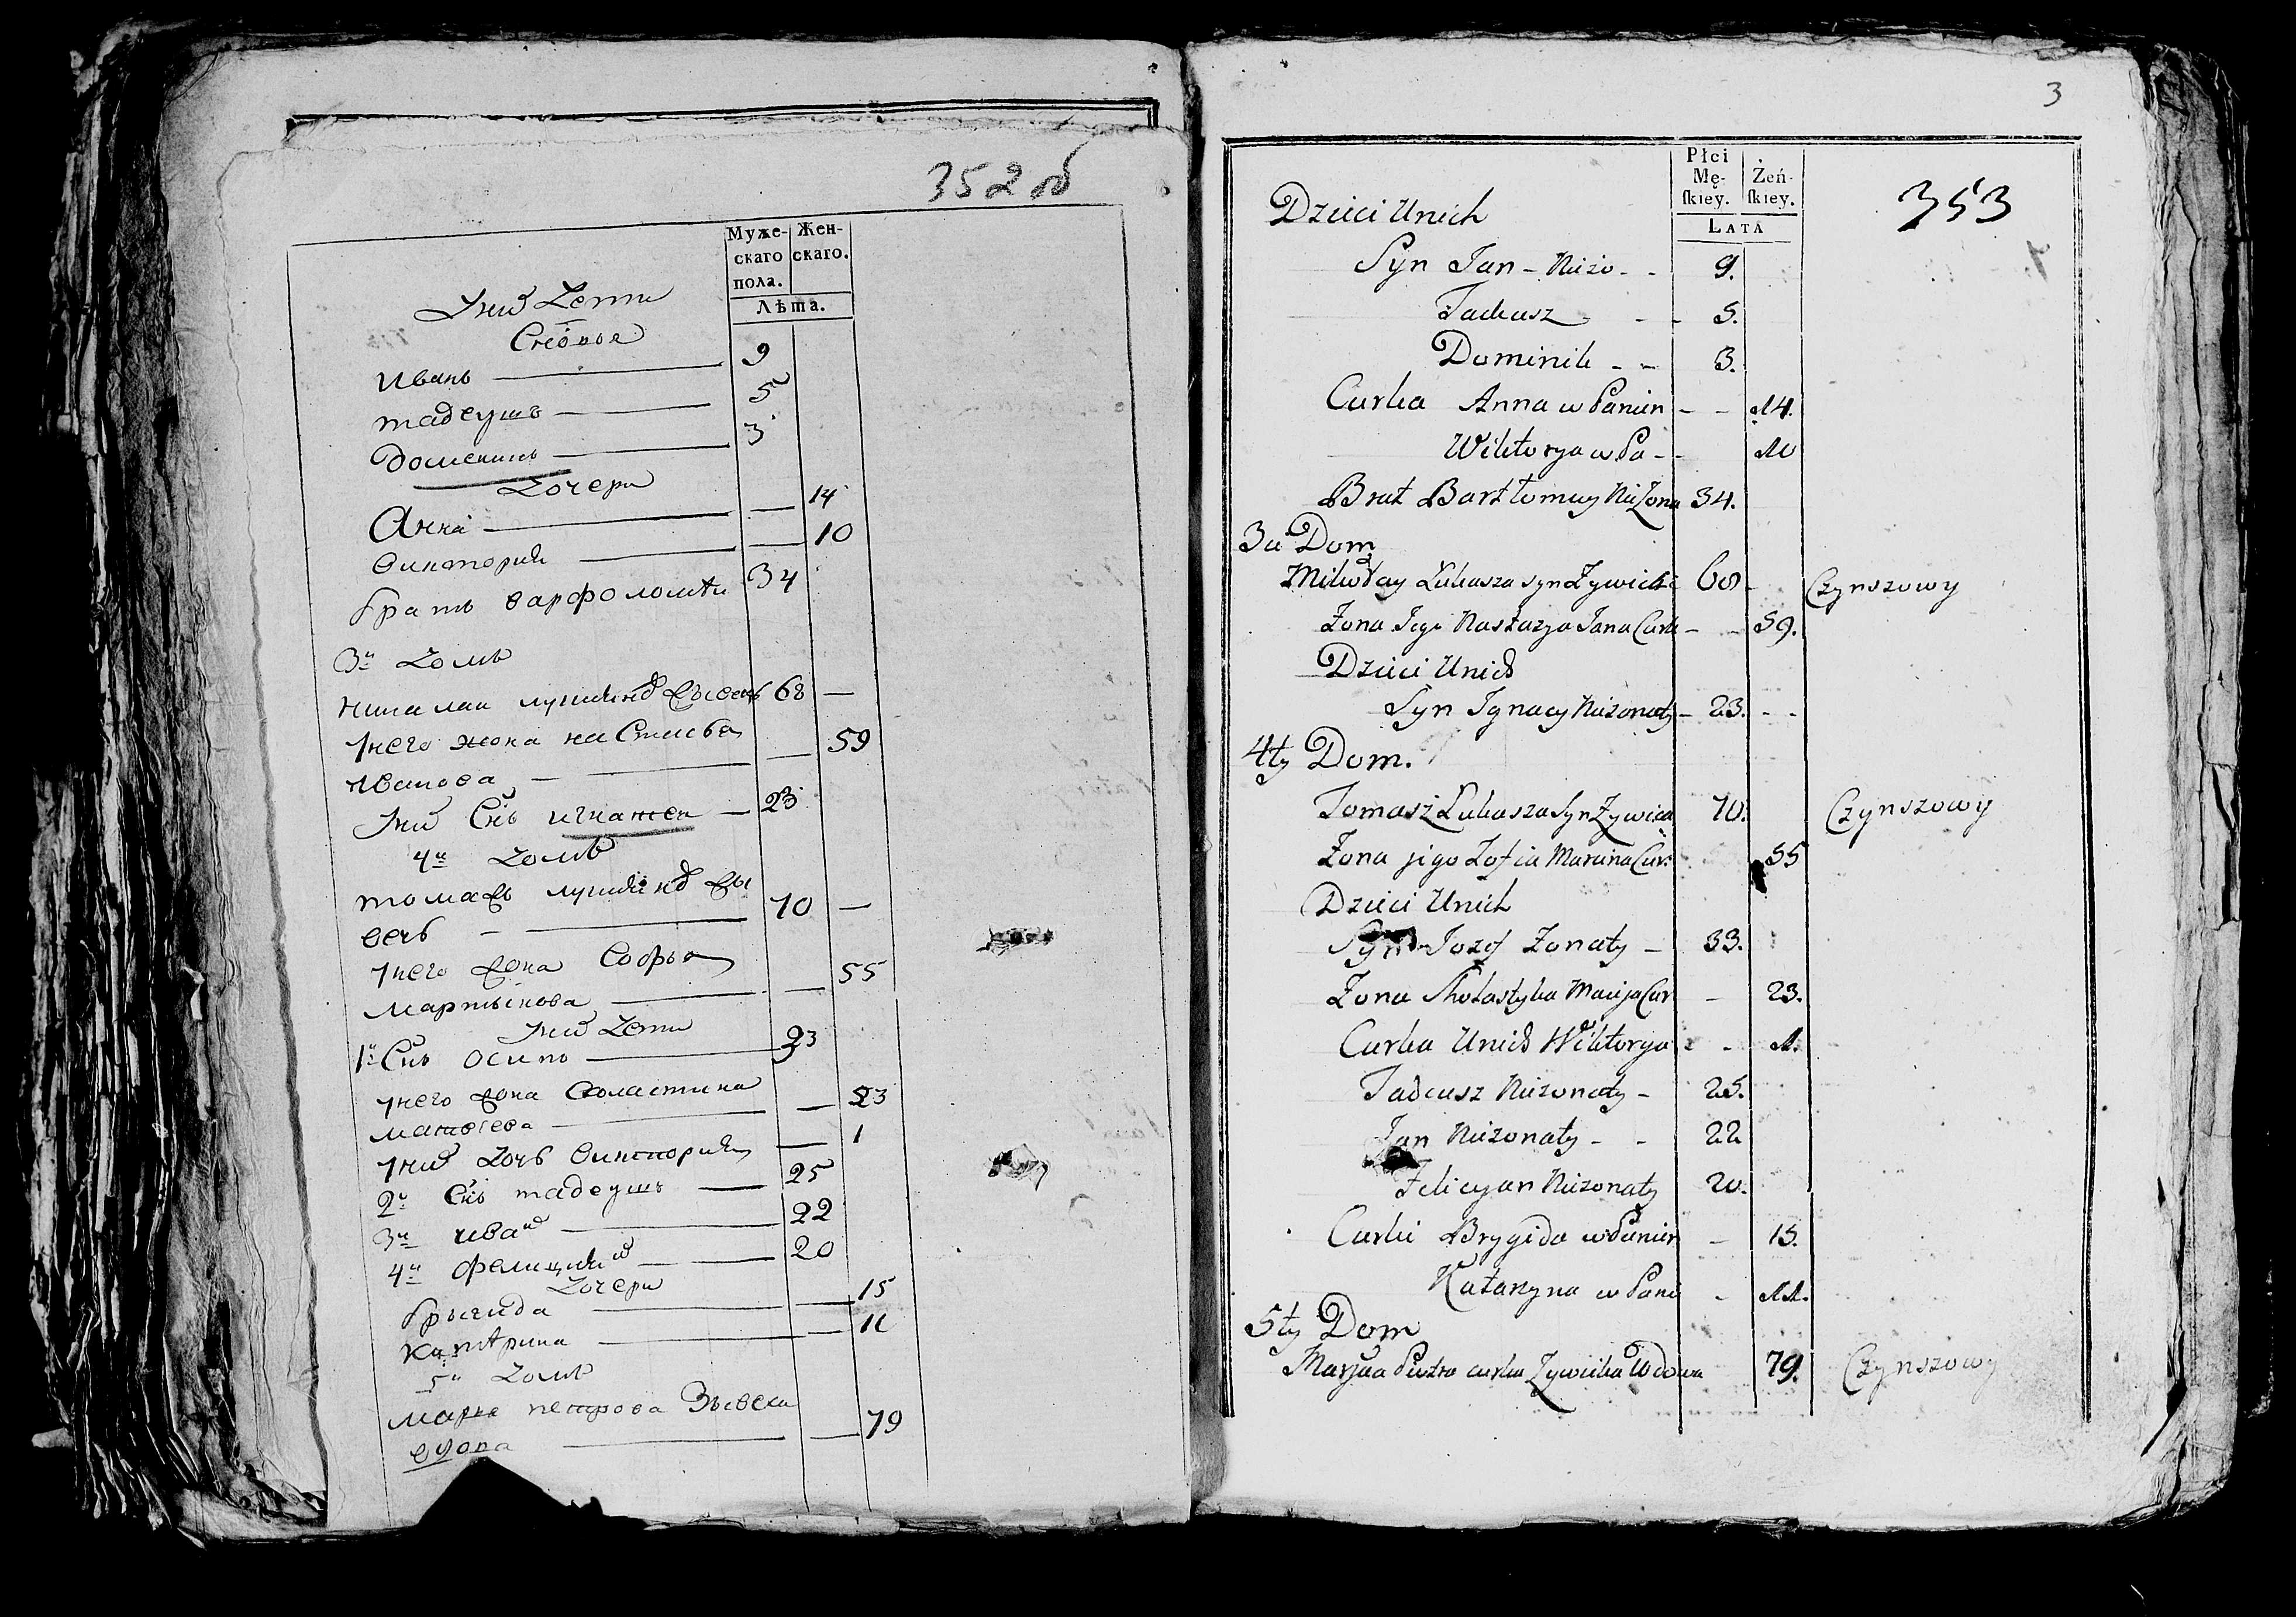 352 об
Муже- Жен-
скаго скаго.
пола.
Лѣта.
Унихъ Дети
Сновья
Иванъ 9
тадеушъ 5
доменикъ 3
Дочери
Анна 14
виктория 10
братъ варфоломѣи 34
3й домъ
николаи лукинъ 68 —
Унего жона настасья 59
Иванова
Унихъ Снъ игнатеи — 23
4й домъ
томашъ лукинъ 70 —
Унего жона Софья 55
мартынова
Унихъ Дети
1й Снъ осипъ 33
Унего жона Схоластика 23
матвеева
Унихъ Дочь виктория 1
2й Снъ тадеушъ 25
3й иванъ 22
4й фелицианъ 20
Дочери
брыгида 15
катѣрина 11
5й домъ
марья петрова 79
вдова
3
Płci
Mę- Żeń-
skiey. skiey.
LATA
353
Dzieci Unich
Syn Jan - Niżo - - 9.
Tadeusz - - 5.
Dominik - - 3.
Curka Anna w Panien - - 14.
Wiktorya w Pa - - 10
Brat Bartłomiey Nie Żona 34.
3ci Dom
Mikołay Łukasza syn Żywicki 68 - Czynszowy
Żona Jego Nastazya Jana Curk - - 59.
Dzieci Unich
Syn Ignacy Nieżonaty - 23. - -
4ty Dom.
Tomasz Łukasza Syn Żywicki 70. Czynszowy
Żona jego Zofia Marcina Cur: 55
Dzieci Unich
Syn Jozef Żonaty - 33.
Żona Skolastyka Macieja Cur - 23.
Curka Unich Wiktorya - - 1.
Tadeusz Nieżonaty - 25.
Jan Nieżonaty - - 22
Felicyan Nieżonaty 20.
Curki Brygida w Panien - 15.
Katarzyna w Pani - 11.
5ty Dom
Maryia Piotra curka Żywicka Wdowa 79. Czynszowy